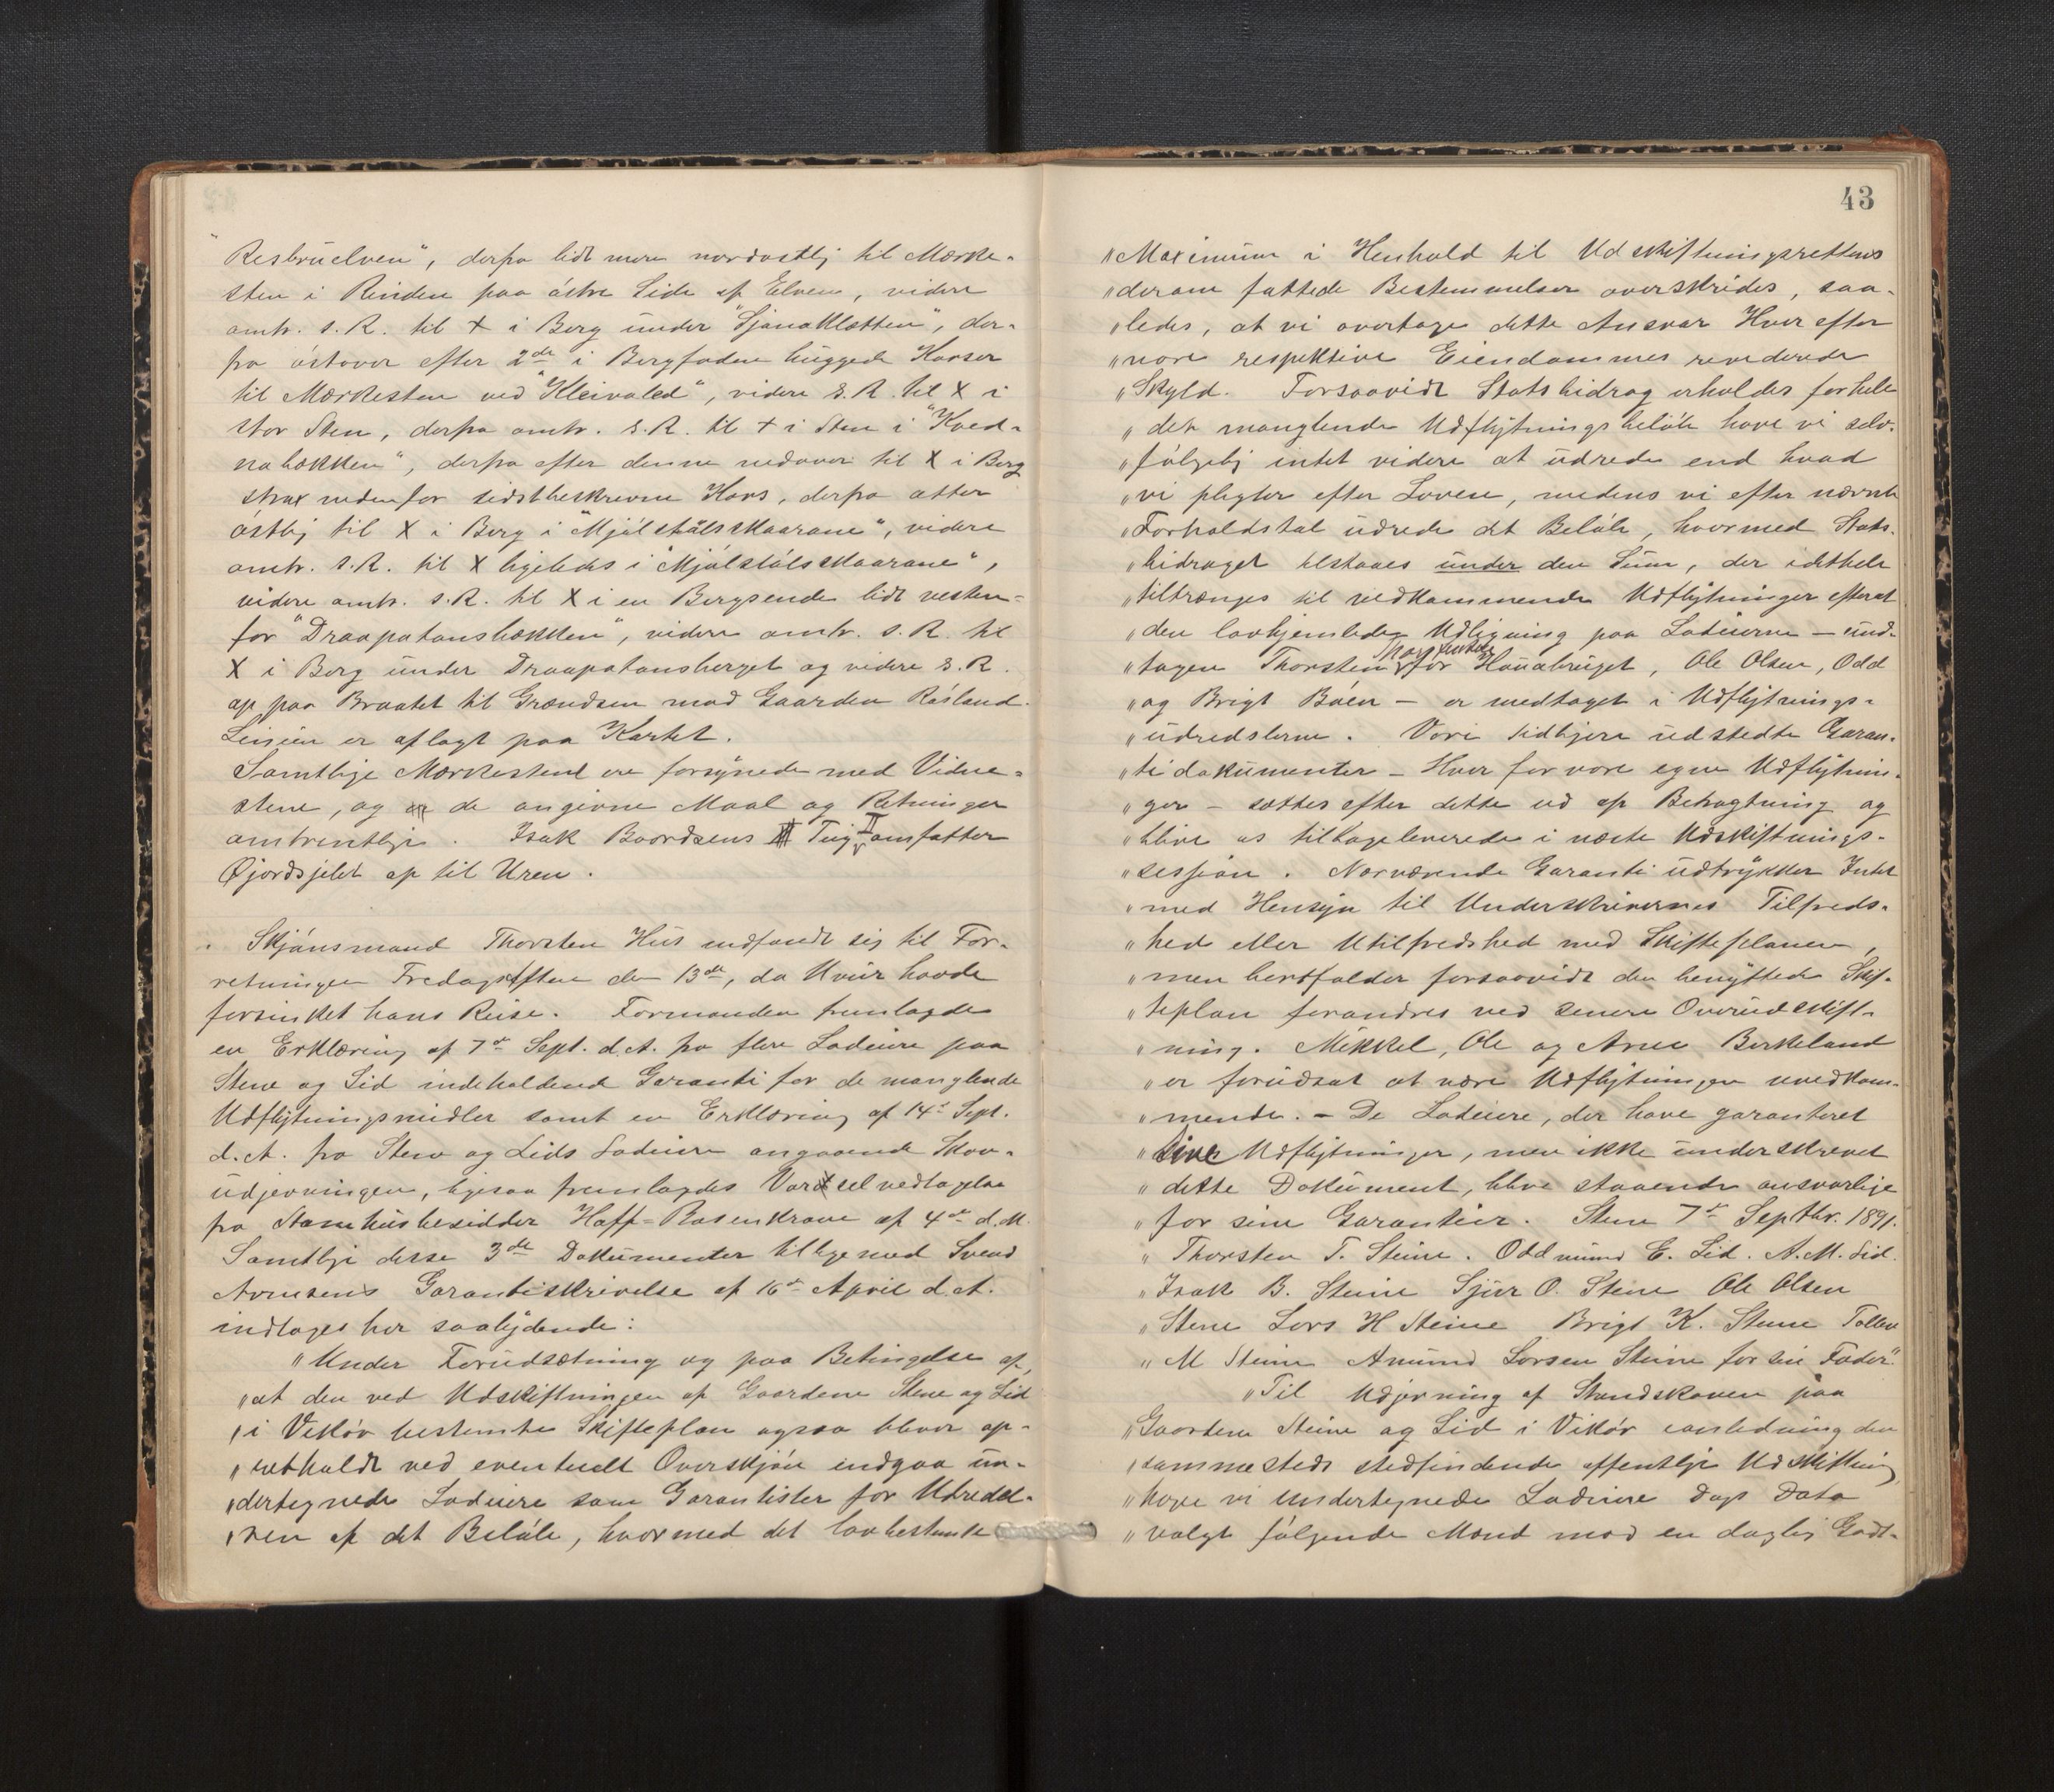 "Resbruelven", derfra lidt mere nordostlig til Mærke-
sten i Rinden paa östre Side af Elven, videre
omtr. s. R. til + i Berg under "Sjonaklætten", der-
fra östover efter 2de i Bergfoden huggede Korser
til Mærkesten ved "Kleivaled", videre s. R. til X i
stor Sten, derfra omtr. s. R. til + i Sten i "Kved-
nabækken", derfra efter denne nedover til X i Berg
strax nedenfor sidstbeskrevne Kors, derfra atter
östlig til X i Berg i "Mjölstölsskaarane", videre
omtr. s. R. til X ligeledes i "Mjölstölsskaarane",
videre omtr. s. R. til X i en Bergsende lidt vesten-
for "Draapatonsbækken", videre omtr. s. R. til
X i Berg under Draapatonsberget og videre s. R.
op paa Braatet til Grændsen mod Gaarden Röisland.
Linien er aflagt paa Kartet.
Samtlige Mærkestene ere forsynede med Vidne-
stene, og de angivne Maal og Retninger
omtrentlige. Isak Baardsens Teig II omfatter
Øjordsjilet op til Uren.
Skjönsmand Thorsten Hus indfandt sig til For-
retningen Fredagsaften den 13de, da Uveir havde
forsinket hans Reise. Formanden fremlagde
en Erklæring af 7de Sept. d. A. fra flere Lodeiere paa
Stene og Lid indeholdende Garanti for de manglende
Udflytningsmidler samt en Erklæring af 14de Sept.
d. A. fra Stene og Lids Lodeiere angaaende Skov-
udjevningen, ligesaa fremlagdes Varselvedtagelse
fra Stamhusbesidder Hoff-Rosenkrone af 4de d. M.
Samtlige disse 3de Dokumenter tilligemed Svend
Arnesens Garantiskrivelse af 16de April d. A.
indtages her saalydende:
"Under Forudsætning og paa Betingelse af,
"at den ved Udskiftningen af Gaardene Stene og Lid
"i Vikör bestemte Skifteplan ogsaa bliver op-
"retholdt ved eventuelt Overskjön indgaa un-
"dertegnede Lodeiere som Garantister for Udredel-
"sen af det Belöb, hvormed det lovbestemte
43
"Maximum i Henhold til Udskiftningsrettens
"derom fattede Bestemmelser overskrides, saa-
"ledes, at vi overtage dette Ansvar Hver efter
"vore respektive Eiendommes reviderede
"Skyld. Forsaavidt Statsbidrag erholdes for hele
"det manglende Udflytningsbelöb have vi selv-
"fölgelig intet videre at udrede end hvad
"vi pligter efter Loven, medens vi efter nævnte
"Forholdstal udrede det Belöb, hvormed Stats-
"bidraget tilstaaes under den Sum, der idethele
"tiltrænges til vedkommende Udflytninger efterat
"den lovhjemlede Udligning paa Lodeierne — und-
"tagen Thorsten for Hauabruget, Ole Olsen, Odd
"og Brigt Böen — er medtaget i Udflytnings-
"udredslerne. Vore tidligere udstedte Garan-
"tidokumenter — Hver for vore egne Udflytnin-
"ger — sættes efter dette ud af Betragtning og
"blive os tilbageleverede i næste Udskiftnings-
"session. Nærværende Garanti udtrykker Intet
"med Hensyn til Underskrivernes Tilfreds-
"hed eller Utilfredshed med Skifteplanen,
"men bortfalder forsaavidt den benyttede Skif-
"teplan forandres ved senere Overudskift-
"ning. Mikkel, Ole og Arne Berkeland
"er forudsat at være Udflytningen uvedkom-
"mende. — De Lodeiere, der have garanteret
"sine Udflytninger, men ikke underskrevet
"dette Dokument, blive staaende ansvarlige
"for sine Garantier. Stene 7de Septbr. 1891.
"Thorsten T. Steine. Oddmund E. Lid. A. M. Lid.
"Isak B. Steine Sjur O. Stene Ole Olsen
"Stene Lars H Steine Brigt K. Stene Tollev
"M Steine Amund Larsen Steine for sin Fader."
"Til Udjevning af Strandskoven paa
"Gaardene Steine og Lid i Vikör i anledning den
"sammesteds stedfindende offentlige Udskiftning
"have vi undertegnede Lodeiere Dags Dato
"valgt fölgende Mænd mod en daglig Godt-